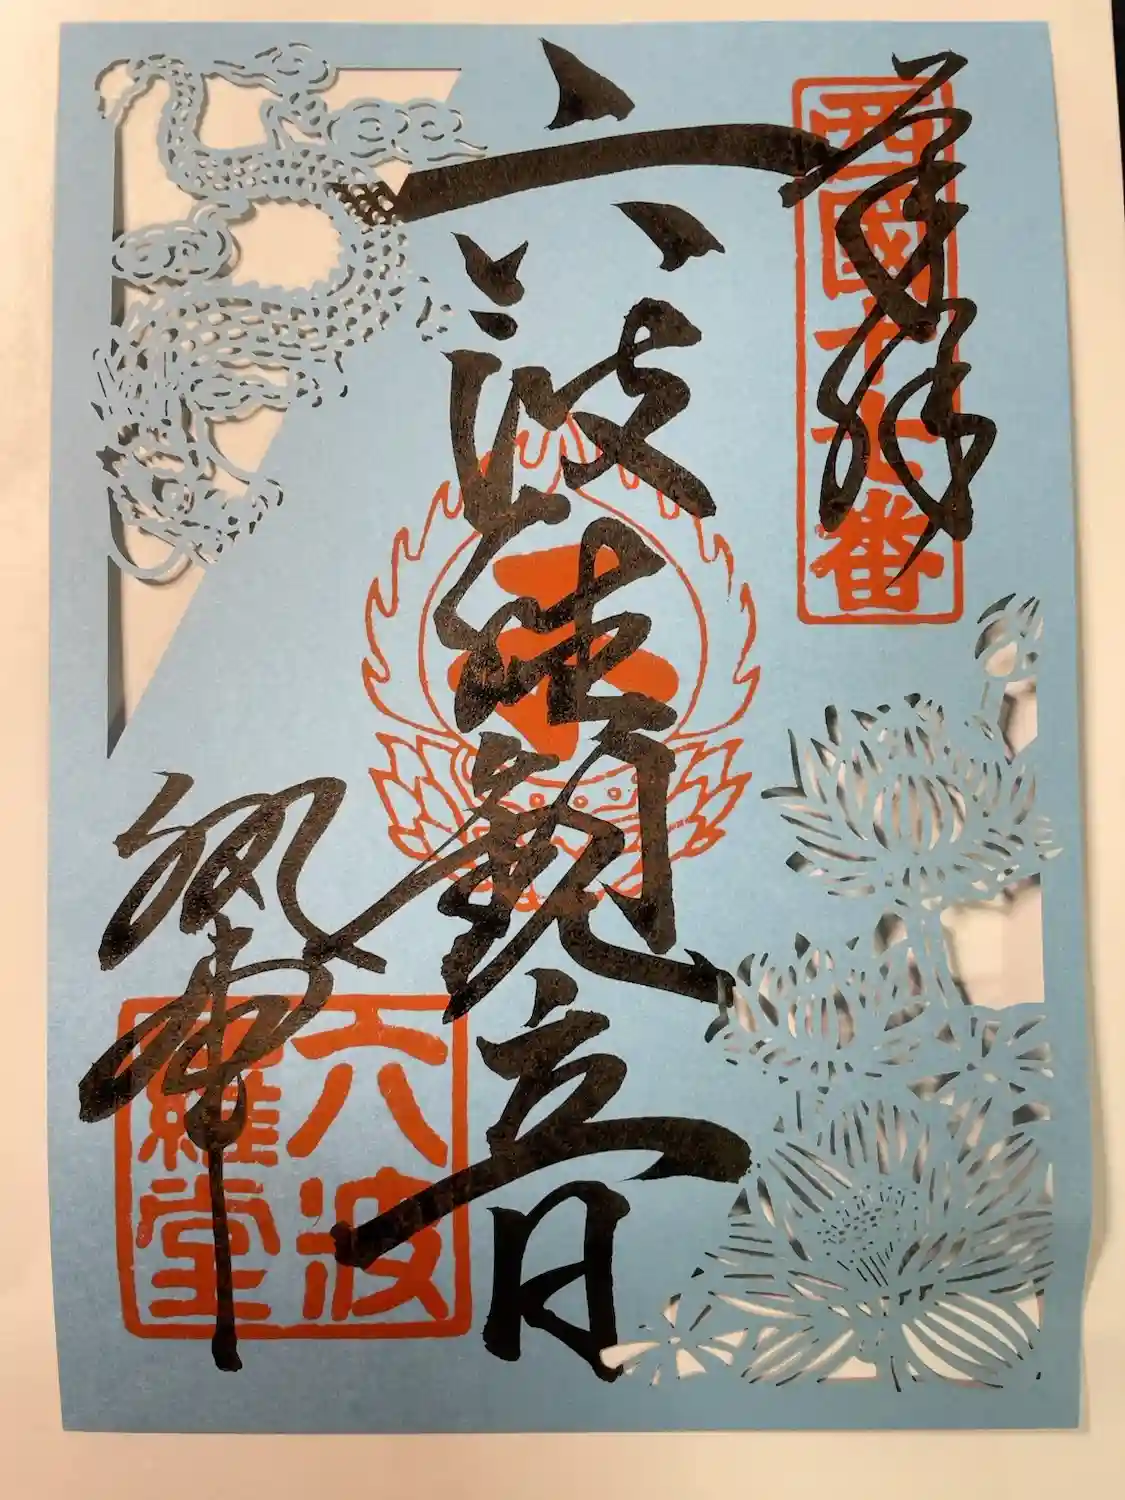 奉拝
西國十七番
六波羅観音
六波
羅堂